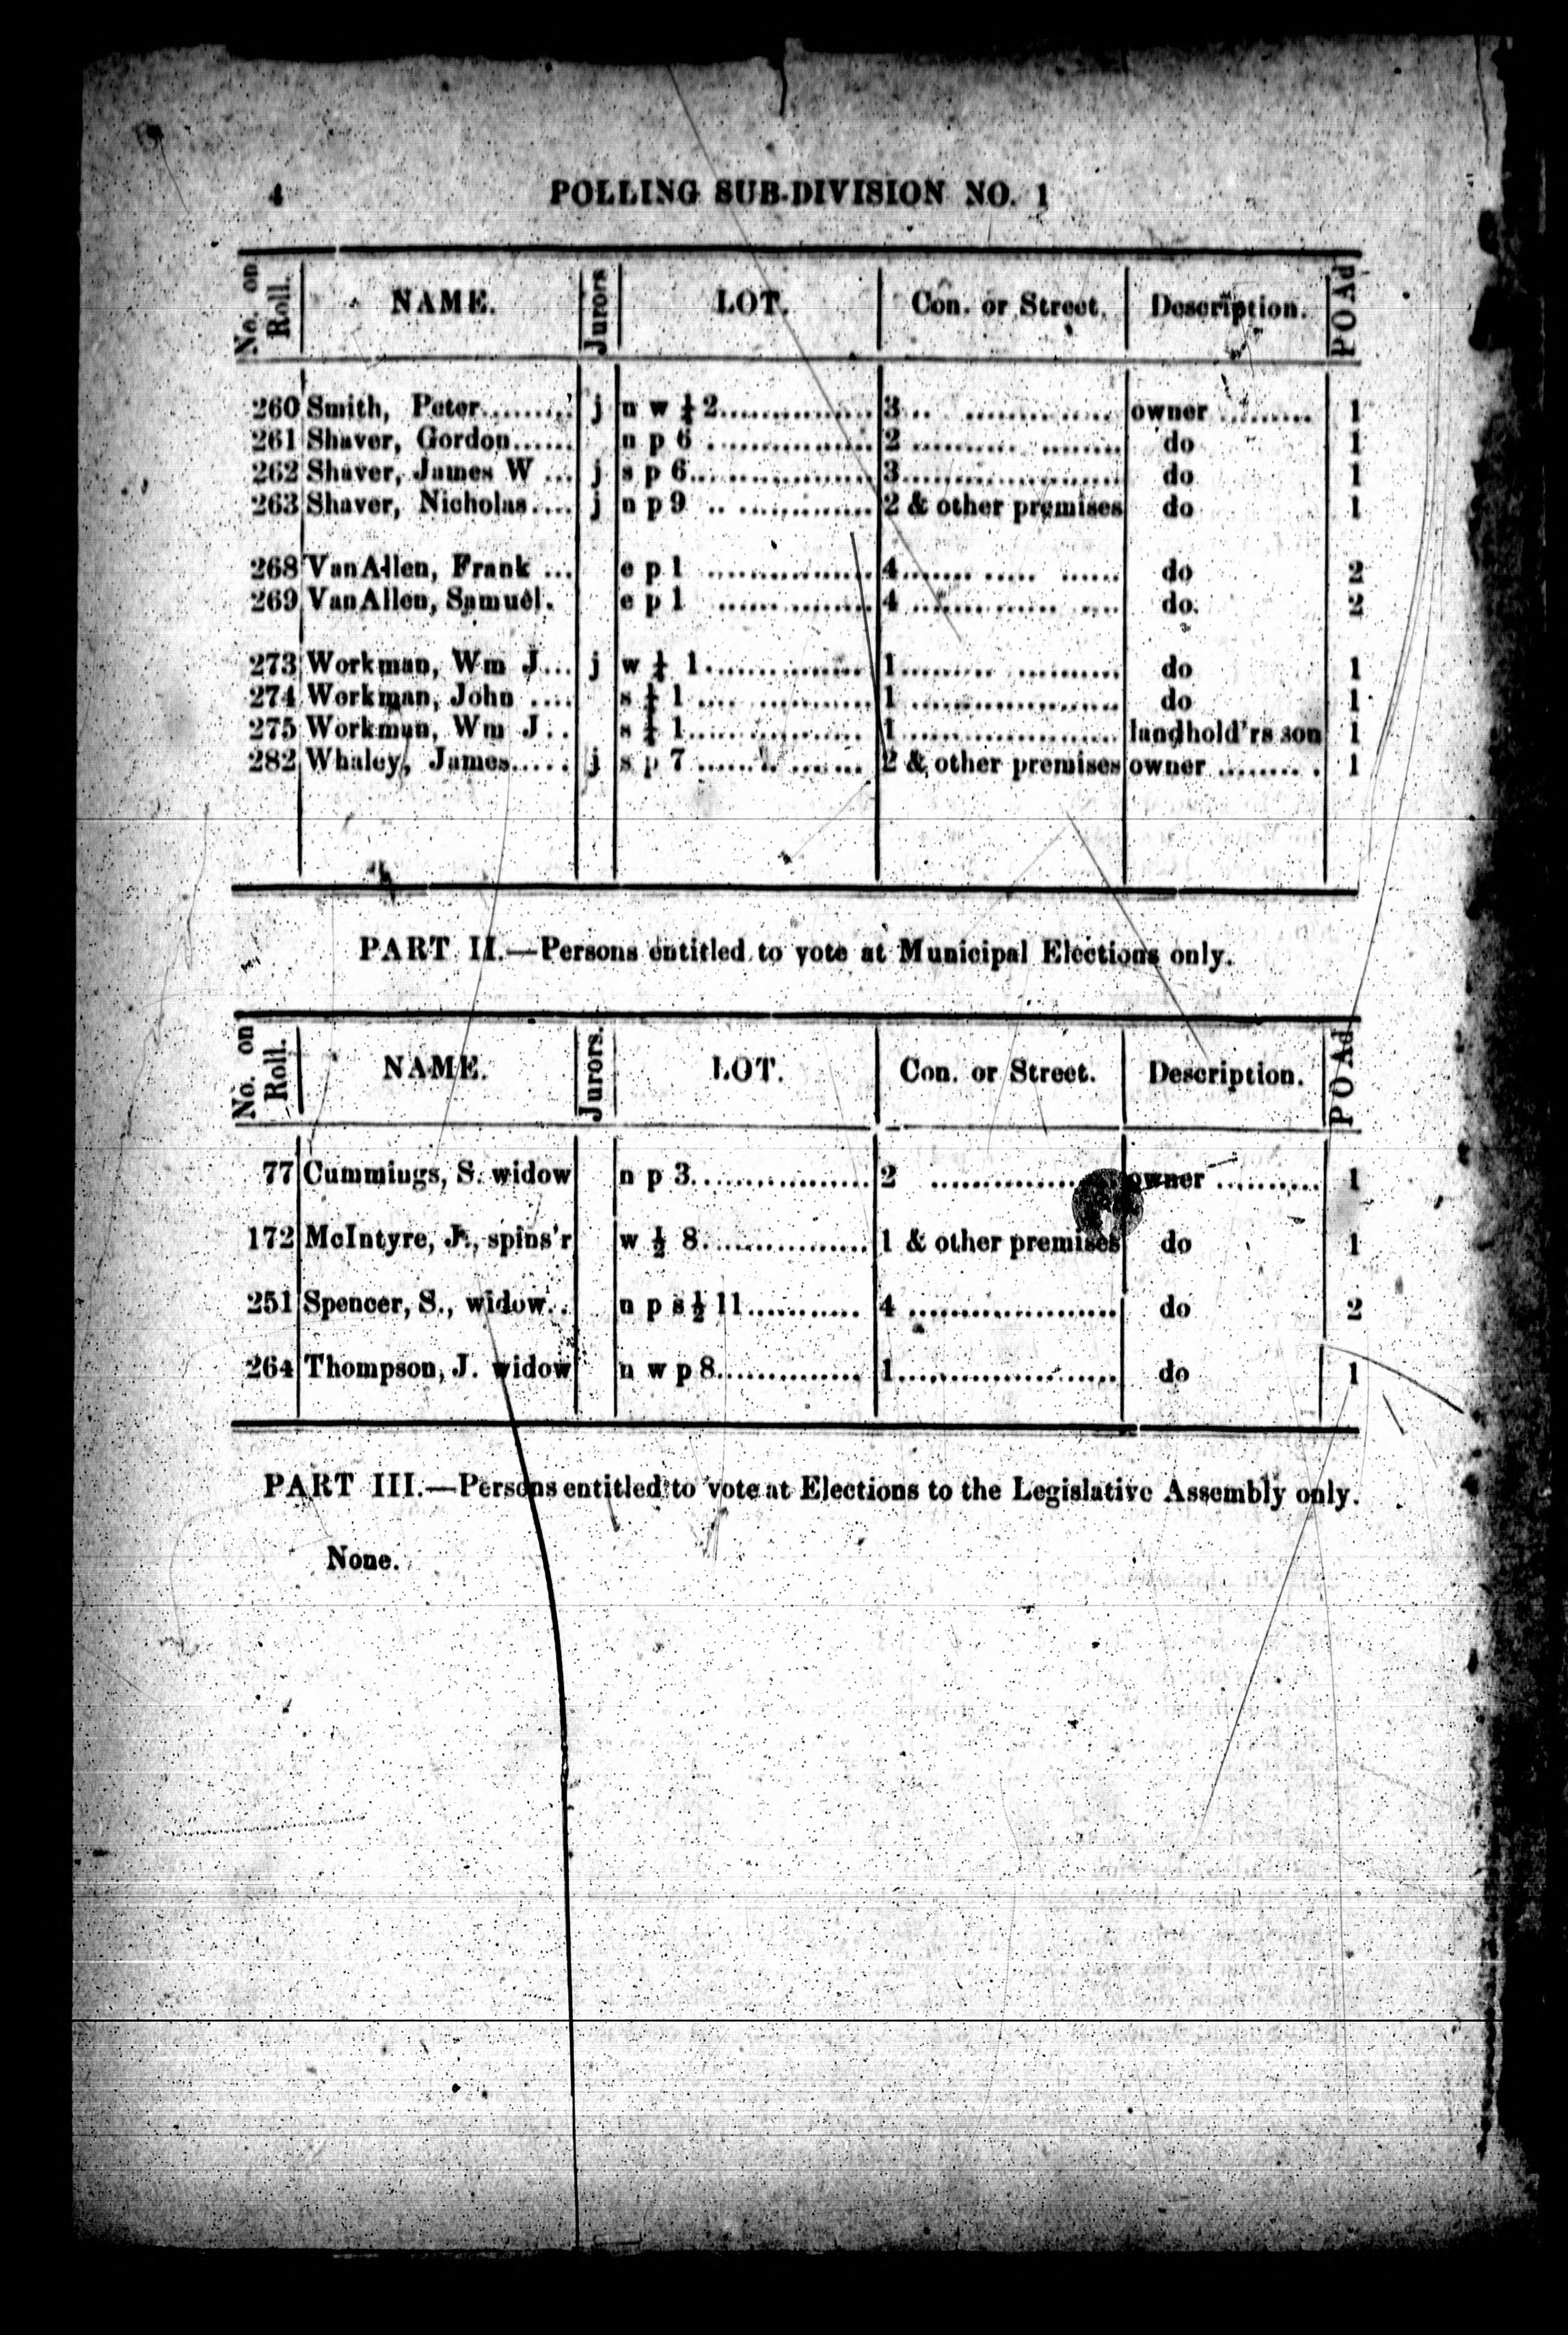 4 POLLING SUB-DIVISION NO. 1
No. on Roll. NAME. Jurors LOT. Con. or Street. Description. P O Ad
260 Smith, Peter......... j n w ¼ 2............... 3.. .............. owner ......... 1
261 Shaver, Gordon...... n p 6 ............... 2 .......... ........ do 1
262 Shaver, James W ... j s p 6............... 3..................... do 1
263 Shaver, Nicholas.... j n p 9 .. ............. 2 & other premises do 1
268 VanAllen, Frank ... e p 1 ............... 4....... ..... ...... do 2
269 VanAllen, Samuel. e p 1 ............... 4 .............. .... do. 2
273 Workman, Wm J... j w 1............... 1......... .......... do 1
274 Workman, John .... s 1 .... ............ 1 .................... do 1
275 Workman, Wm J.. s 1................ 1 .................... landhold'rs son 1
282 Whaley, James..... j s p 7 ................ 2 & other premises owner ........ . 1
PART II.—Persons entitled to vote at Municipal Elections only.
No. on Roll. NAME. Jurors. LOT. Con. or Street. Description. P O Ad
77 Cummings, S. widow n p 3................. 2 ................ owner .......... 1
172 McIntyre, J., spins'r w ½ 8................ 1 & other premises do 1
251 Spencer, S., widow... n p s ½ 11........... 4 .................... do 2
264 Thompson, J. widow n w p 8.............. 1..................... do 1
PART III.—Persons entitled to vote at Elections to the Legislative Assembly only.
None.